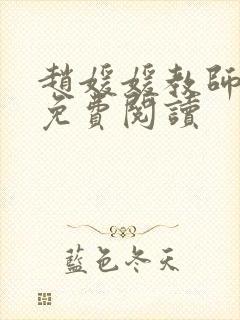 趙媛媛教師
免費閱讀
藍色冬天